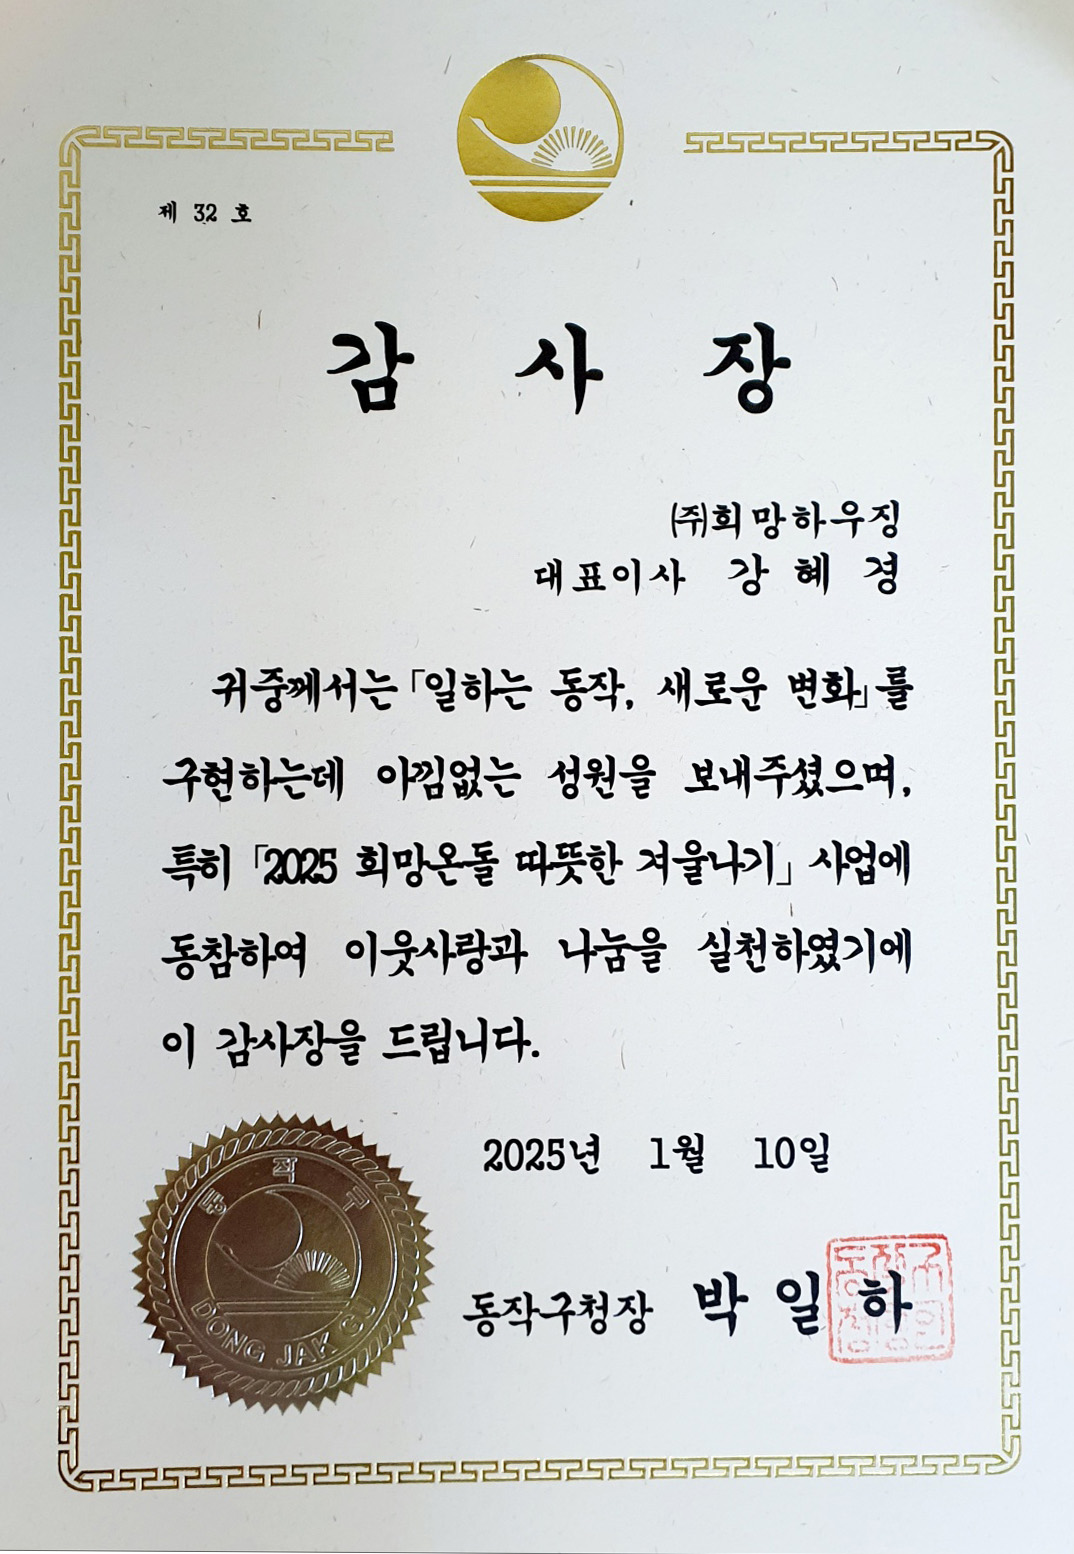 제 32 호
감 사 장
㈜희망하우징
대표이사 강 혜 경
귀중께서는「일하는 동작, 새로운 변화」를
구현하는데 아낌없는 성원을 보내주셨으며,
특히 「2025 희망온돌 따뜻한 겨울나기」 사업에
동참하여 이웃사랑과 나눔을 실천하였기에
이 감사장을 드립니다.
2025년 1월 10일
동작구청장 박 일 하
동작구
DONG JAK GU